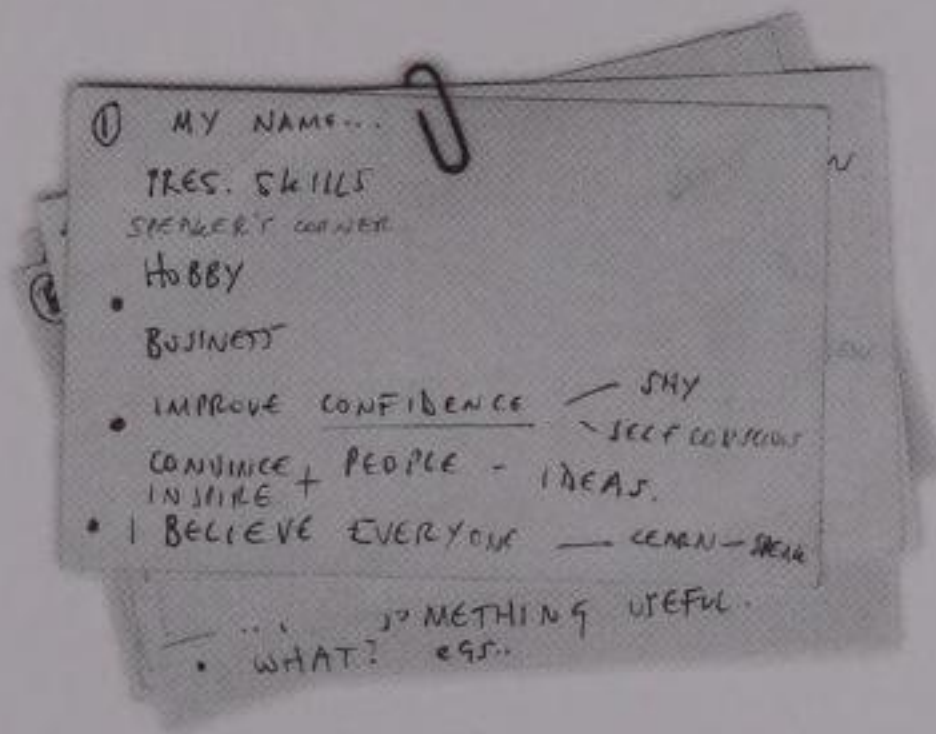 ① MY NAME...
PRES. SKILLS
SPEAKER'S CORNER
HOBBY
• BUSINESS
• IMPROVE CONFIDENCE — SHY
SELF CONSCIOUS
CONVINCE + PEOPLE - IDEAS.
INSPIRE
• I BELIEVE EVERYONE — LEARN - SPEAK
SOMETHING USEFUL.
• WHAT? EGS..
N